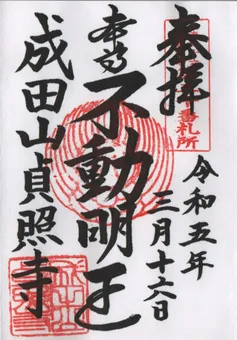 奉拝
札所
令和五年
三月十六日
本尊
不動明王
成田山貞照寺